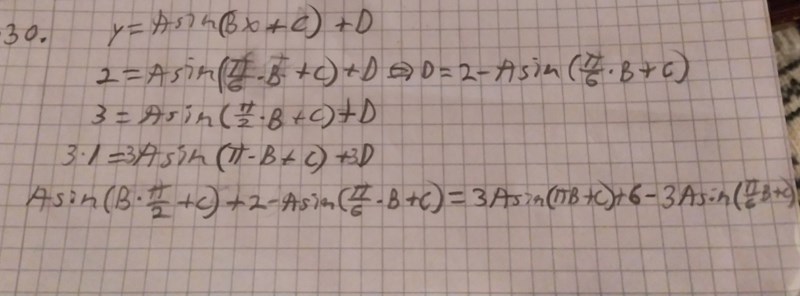 30. y = Asin(Bx + C) + D
2 = Asin(π/6 · B + C) + D ⇔ D = 2 - Asin(π/6 · B + C)
3 = Asin(π/2 · B + C) + D
3·1 = 3Asin(π · B + C) + 3D
Asin(B · π/2 + C) + 2 - Asin(π/6 · B + C) = 3Asin(πB + C) + 6 - 3Asin(π/6 B + C)